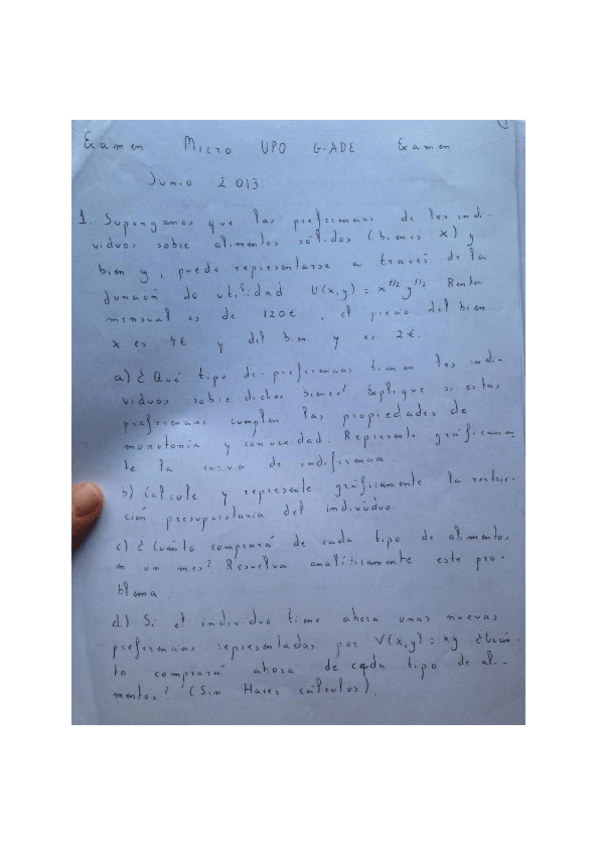 Examen Micro UPO GADE Examen
Junio 2013
1. Supongamos que las preferencias de los indi-
viduos sobre alimentos sólidos (bienes x) y
bien y, puede representarse a través de la
función de utilidad U(x,y) = x^1/2 y^1/2 Renta
mensual es de 120€, el precio del bien
x es 4€ y del bien y es 2€.
a) ¿Qué tipo de preferencias tienen los indi-
viduos sobre dichos bienes? Explique si estas
preferencias cumplen las propiedades de
monotonia y convexidad. Represente gráficamen-
te la curva de indiferencia.
b) Calcule y represente gráficamente la restric-
ción presupuestaria del individuo.
c) ¿Cuánto comprará de cada tipo de alimentos
en un mes? Resuelva analíticamente este pro-
blema.
d.) Si el individuo tiene ahora unas nuevas
preferencias representadas por V(x,y) = xy ¿Cuán-
to comprará ahora de cada tipo de ali-
mentos? (Sin Hacer cálculos).